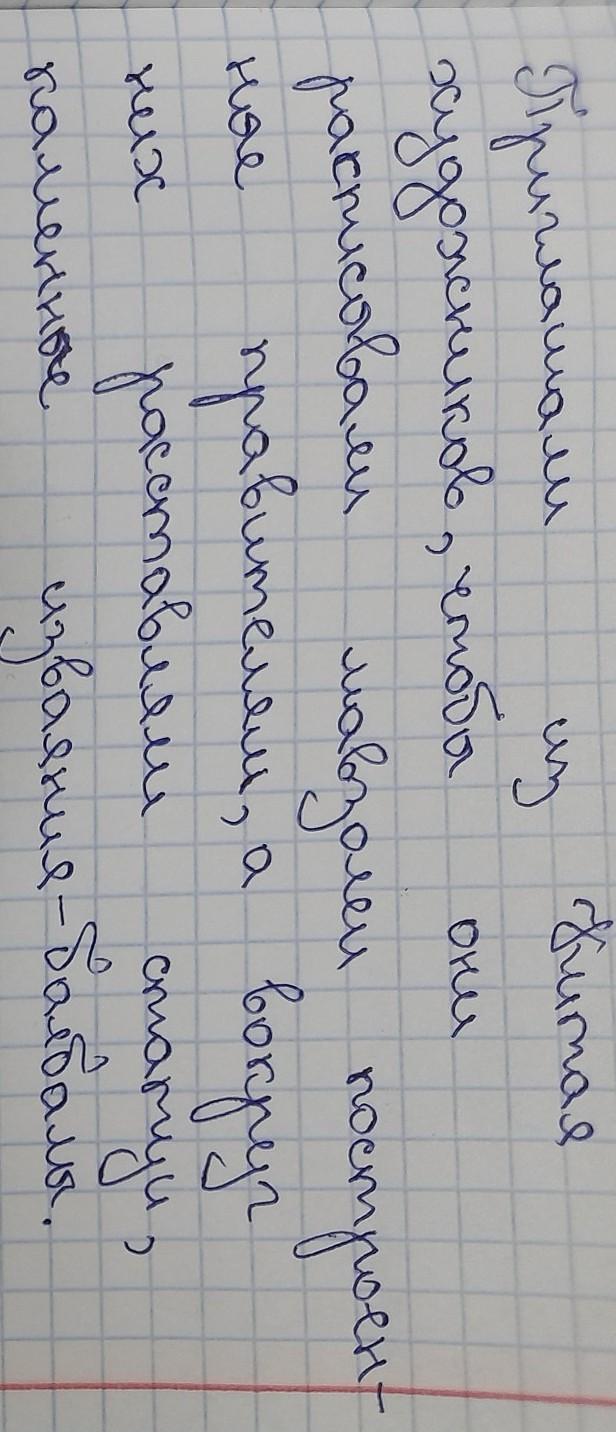 Приглашали из Китая
художников, чтобы они
расписовали мавзолеи построен-
ное правителям, а вокруг
них расставляли статуи,
каменные изваяния-балбалы.